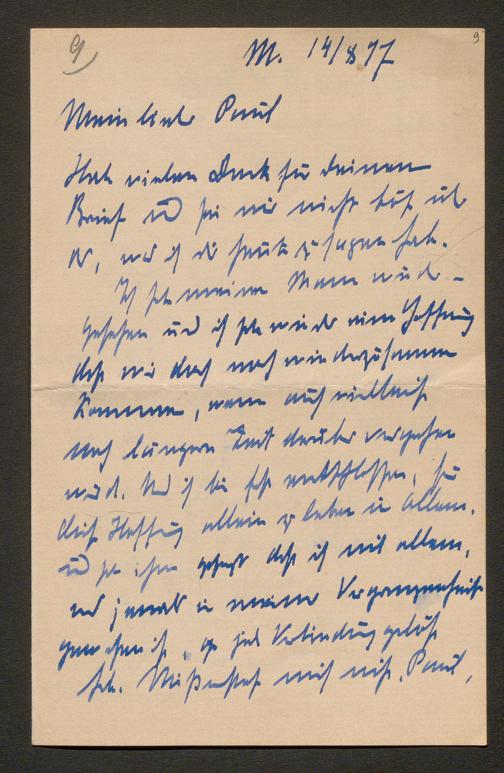 9
9
M. 14/8 77
Mein lieber Paul
Hab vielen Dank für Deinen
Brief und sei mir nicht böse üb
er, was ich dir heute zu sagen habe.
Ich habe meinen Mann wieder-
gesehen und ich habe wieder eine Hoffnung
daß wir doch noch wieder zusammen
kommen, wenn auch vielleicht
noch längere Zeit darüber vergehen
wird. Und ich bin fest entschlossen, für
diese Hoffnung allein zu leben in Allem,
und habe ihm gesagt daß ich mit allem,
was jemals in meiner Vergangenheit
gewesen ist, jede Verbindung gelöst
habe. Mißversteh mich nicht, Paul,